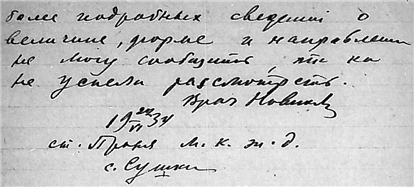 более подробных сведений о
величине, форме и направлении
не могу сообщить, т.к. не
не успели рассмотреть.
Врач Новиков
19 22/VI 34
ст. Проня М. К. ж. д.
с. Сушки